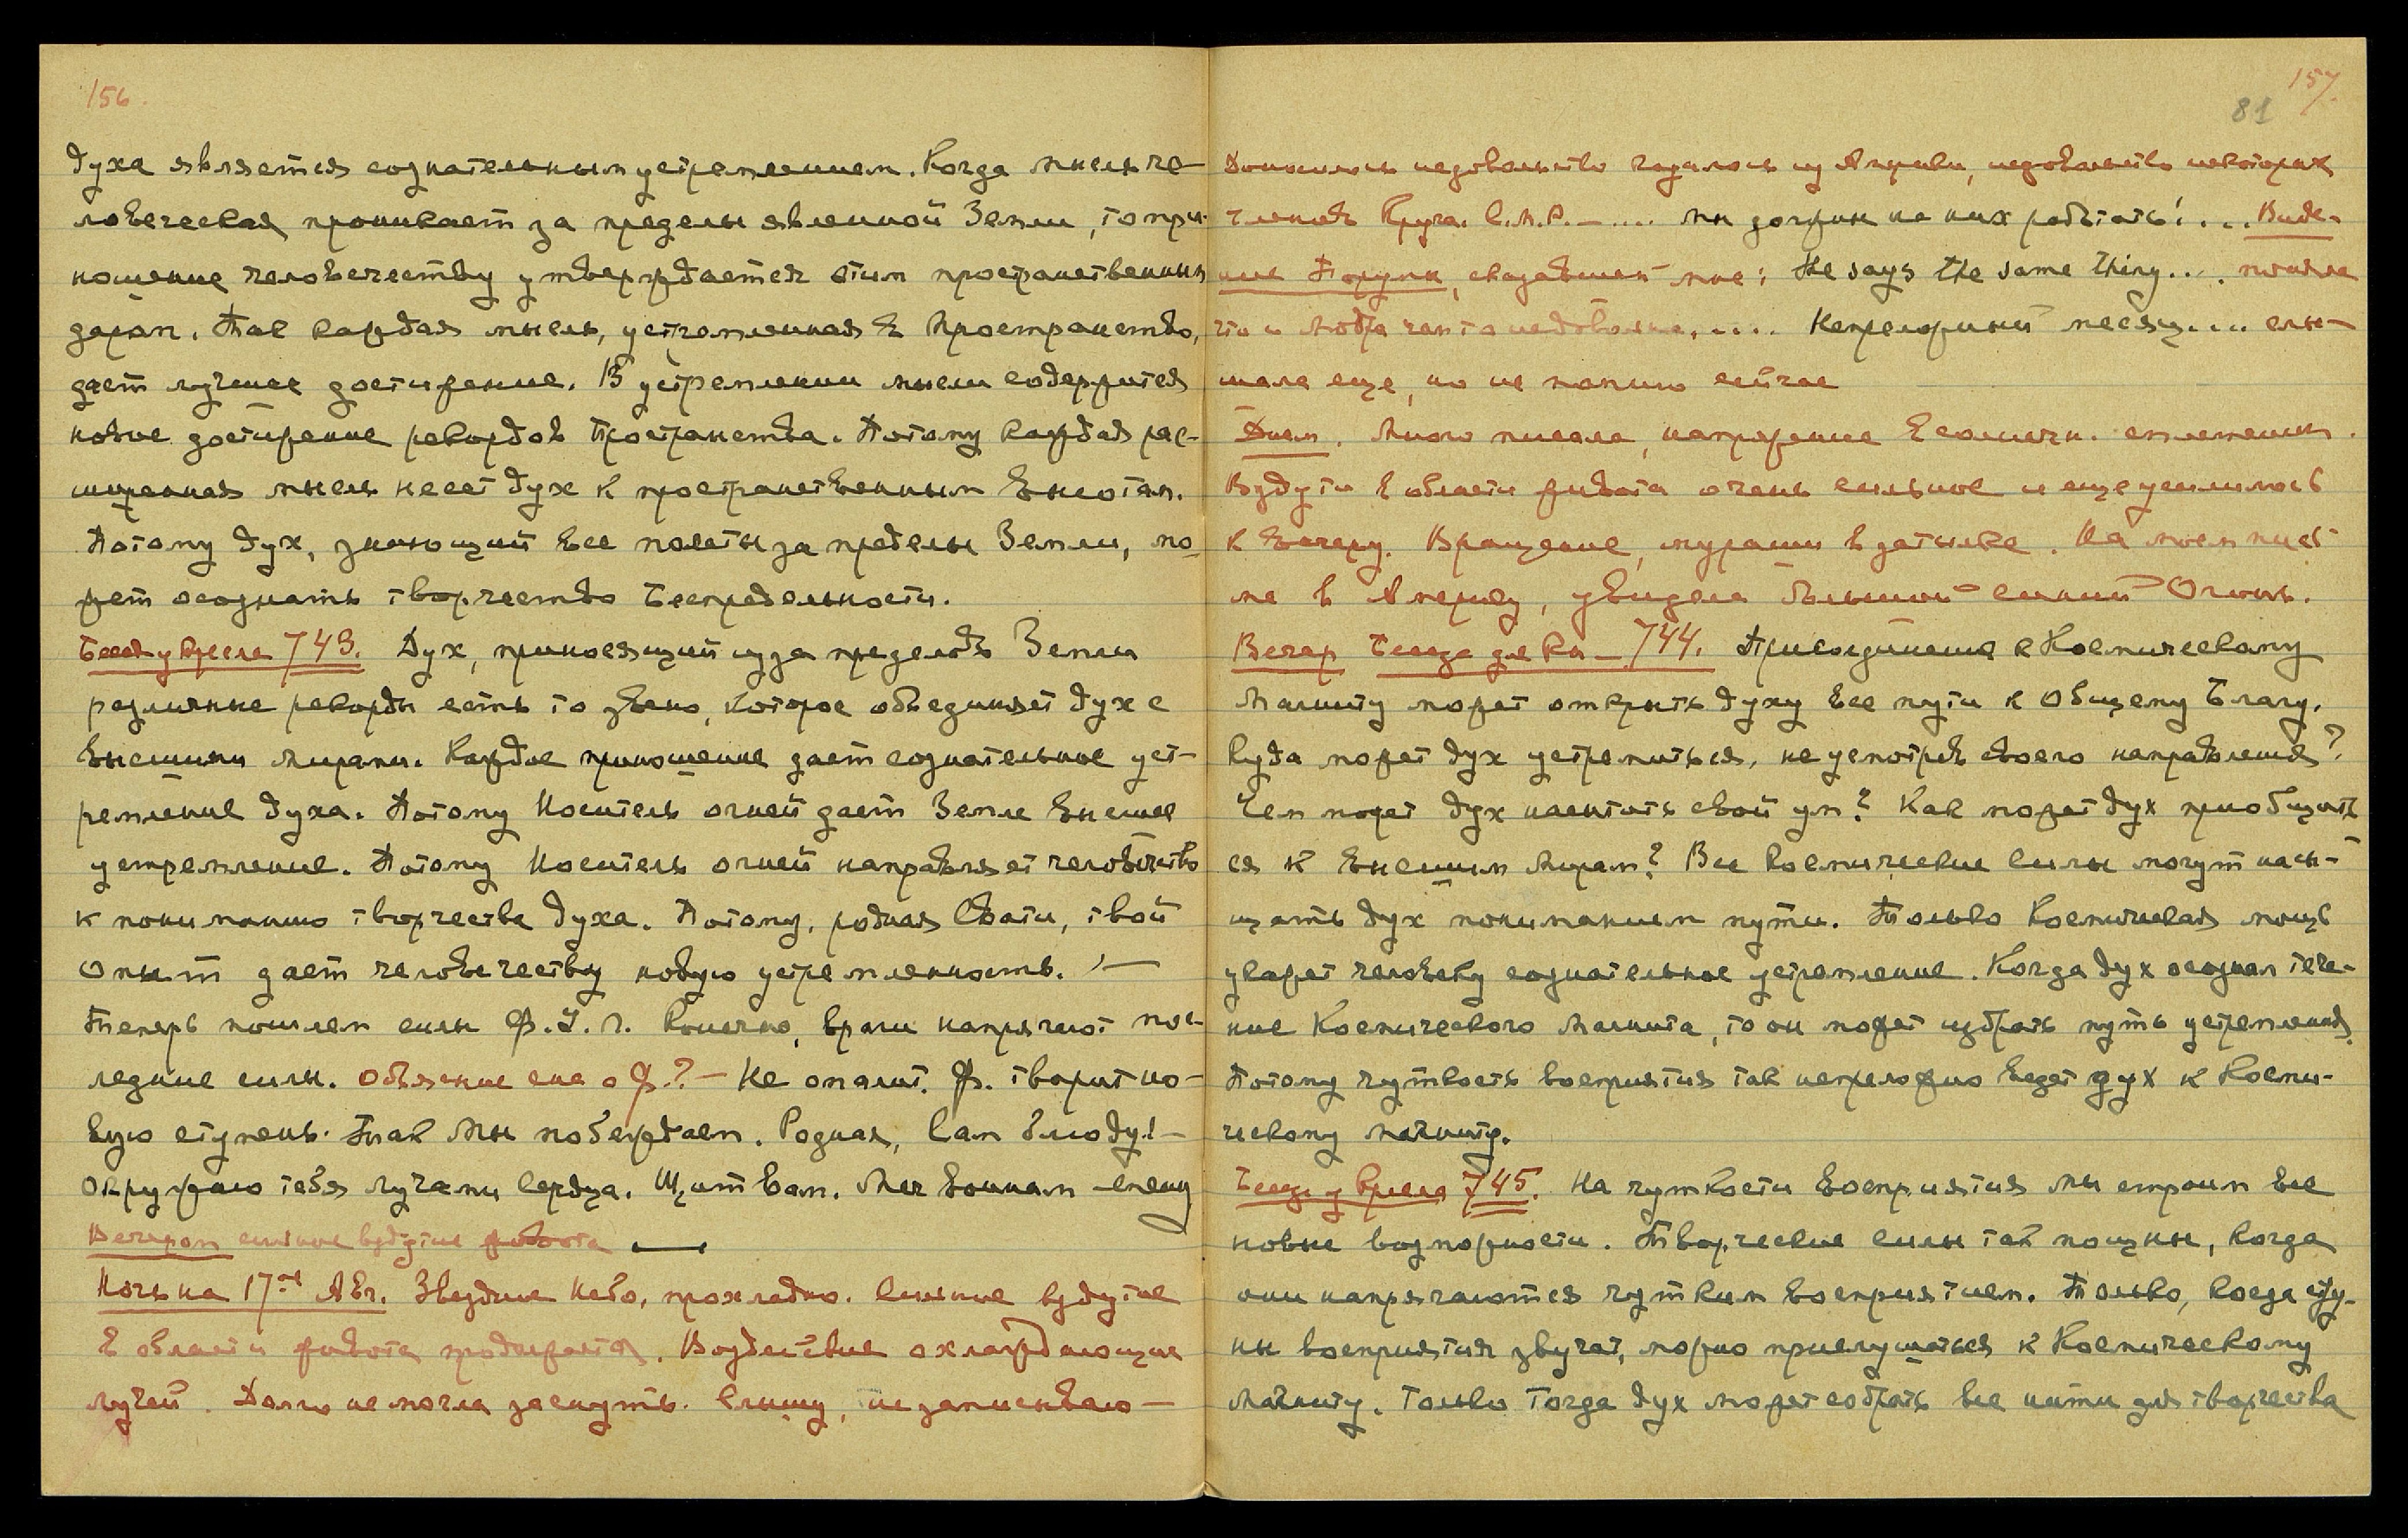 156.
духа является сознательным устремлением. Когда мысль че-
ловеческая проникает за пределы явленной Земли, то при-
ношение человечеству утверждается этим пространственным
даром. Так каждая мысль, устремленная в Пространство,
дает лучшее достижение. В устремлении мысли содержится
новое достижение рекордов Пространства. Потому каждая рас-
ширенная мысль несет дух к пространственным высотам.
Потому дух, знающий все полеты за пределы Земли, мо-
жет осознать творчество Беспредельности.
Беседа у кресла 743. Дух, приносящий из за пределов Земли
различные рекорды есть то звено, которое объединяет дух с
высшими мирами. Каждое приношение дает сознательное уст-
ремление духа. Потому Носитель огней дает Земле высшее
устремление. Потому Носитель огней направляет человечество
к пониманию творчества духа. Потому, родная Свати, твой
опыт дает человечеству новую устремленность. —
Теперь пошлем силы Ф. Конечно, враги напрягают пос-
ледние силы. Объяснение сна о Ф.? — Не опалит. Ф. творит но-
вую ступень. Так Мы побеждаем. Родная, Сам блюду! —
Окружаю тебя лучами Сердца. Щит вам. Меч воинам
Вечером сильное вздутие живота —
Ночь на 17-ое Авг. Звездное небо, прохладно. Сильное вздутие
в области живота продолжается. Воздействие охлаждающих
лучей. Долго не могла заснуть. Слышу, не записываю —
157.
81
Доносилось недовольство из Америки, недовольство некоторых
членов Круга. — .... мы должны на них работать! ... Виде-
ние Порумы, сказавшей мне: He says the same thing.... поняла
что и чем то недовольна. .... Непреложный месяц.... слы-
шала еще, но не помню сейчас
Днем. Много писала, напряжение в солнечн. сплетении.
Вздутие в области живота очень сильное и еще усилилось
к вечеру. Вращение, мурашки в затылке. На моем пись-
ме в Америку, увидела большой синий Огонь.
Вечер Беседа 744. Присоединение к Космическому
Магниту может открыть духу все пути к Общему Благу.
Куда может дух устремиться, не усмотрев своего направления?
Чем может дух насытить свой ум? Как может дух приобщить-
ся к высшим мирам? Все космические силы могут насы-
щать дух пониманием пути. Только Космическая мощь
укажет человеку сознательное устремление. Когда дух осознал тече-
ние Космического Магнита, то он может избрать путь устремления.
Потому чуткость восприятия так непреложно ведет дух к Косми-
ческому магниту.
Беседа у кресла 745. На чуткости восприятия мы строим все
новые возможности. Творческие силы так мощны, когда
они напрягаются чутким восприятием. Только, когда стру-
ны восприятия звучат, можно прислушаться к Космическому
Магниту. Только тогда дух может собрать все нити для творчества